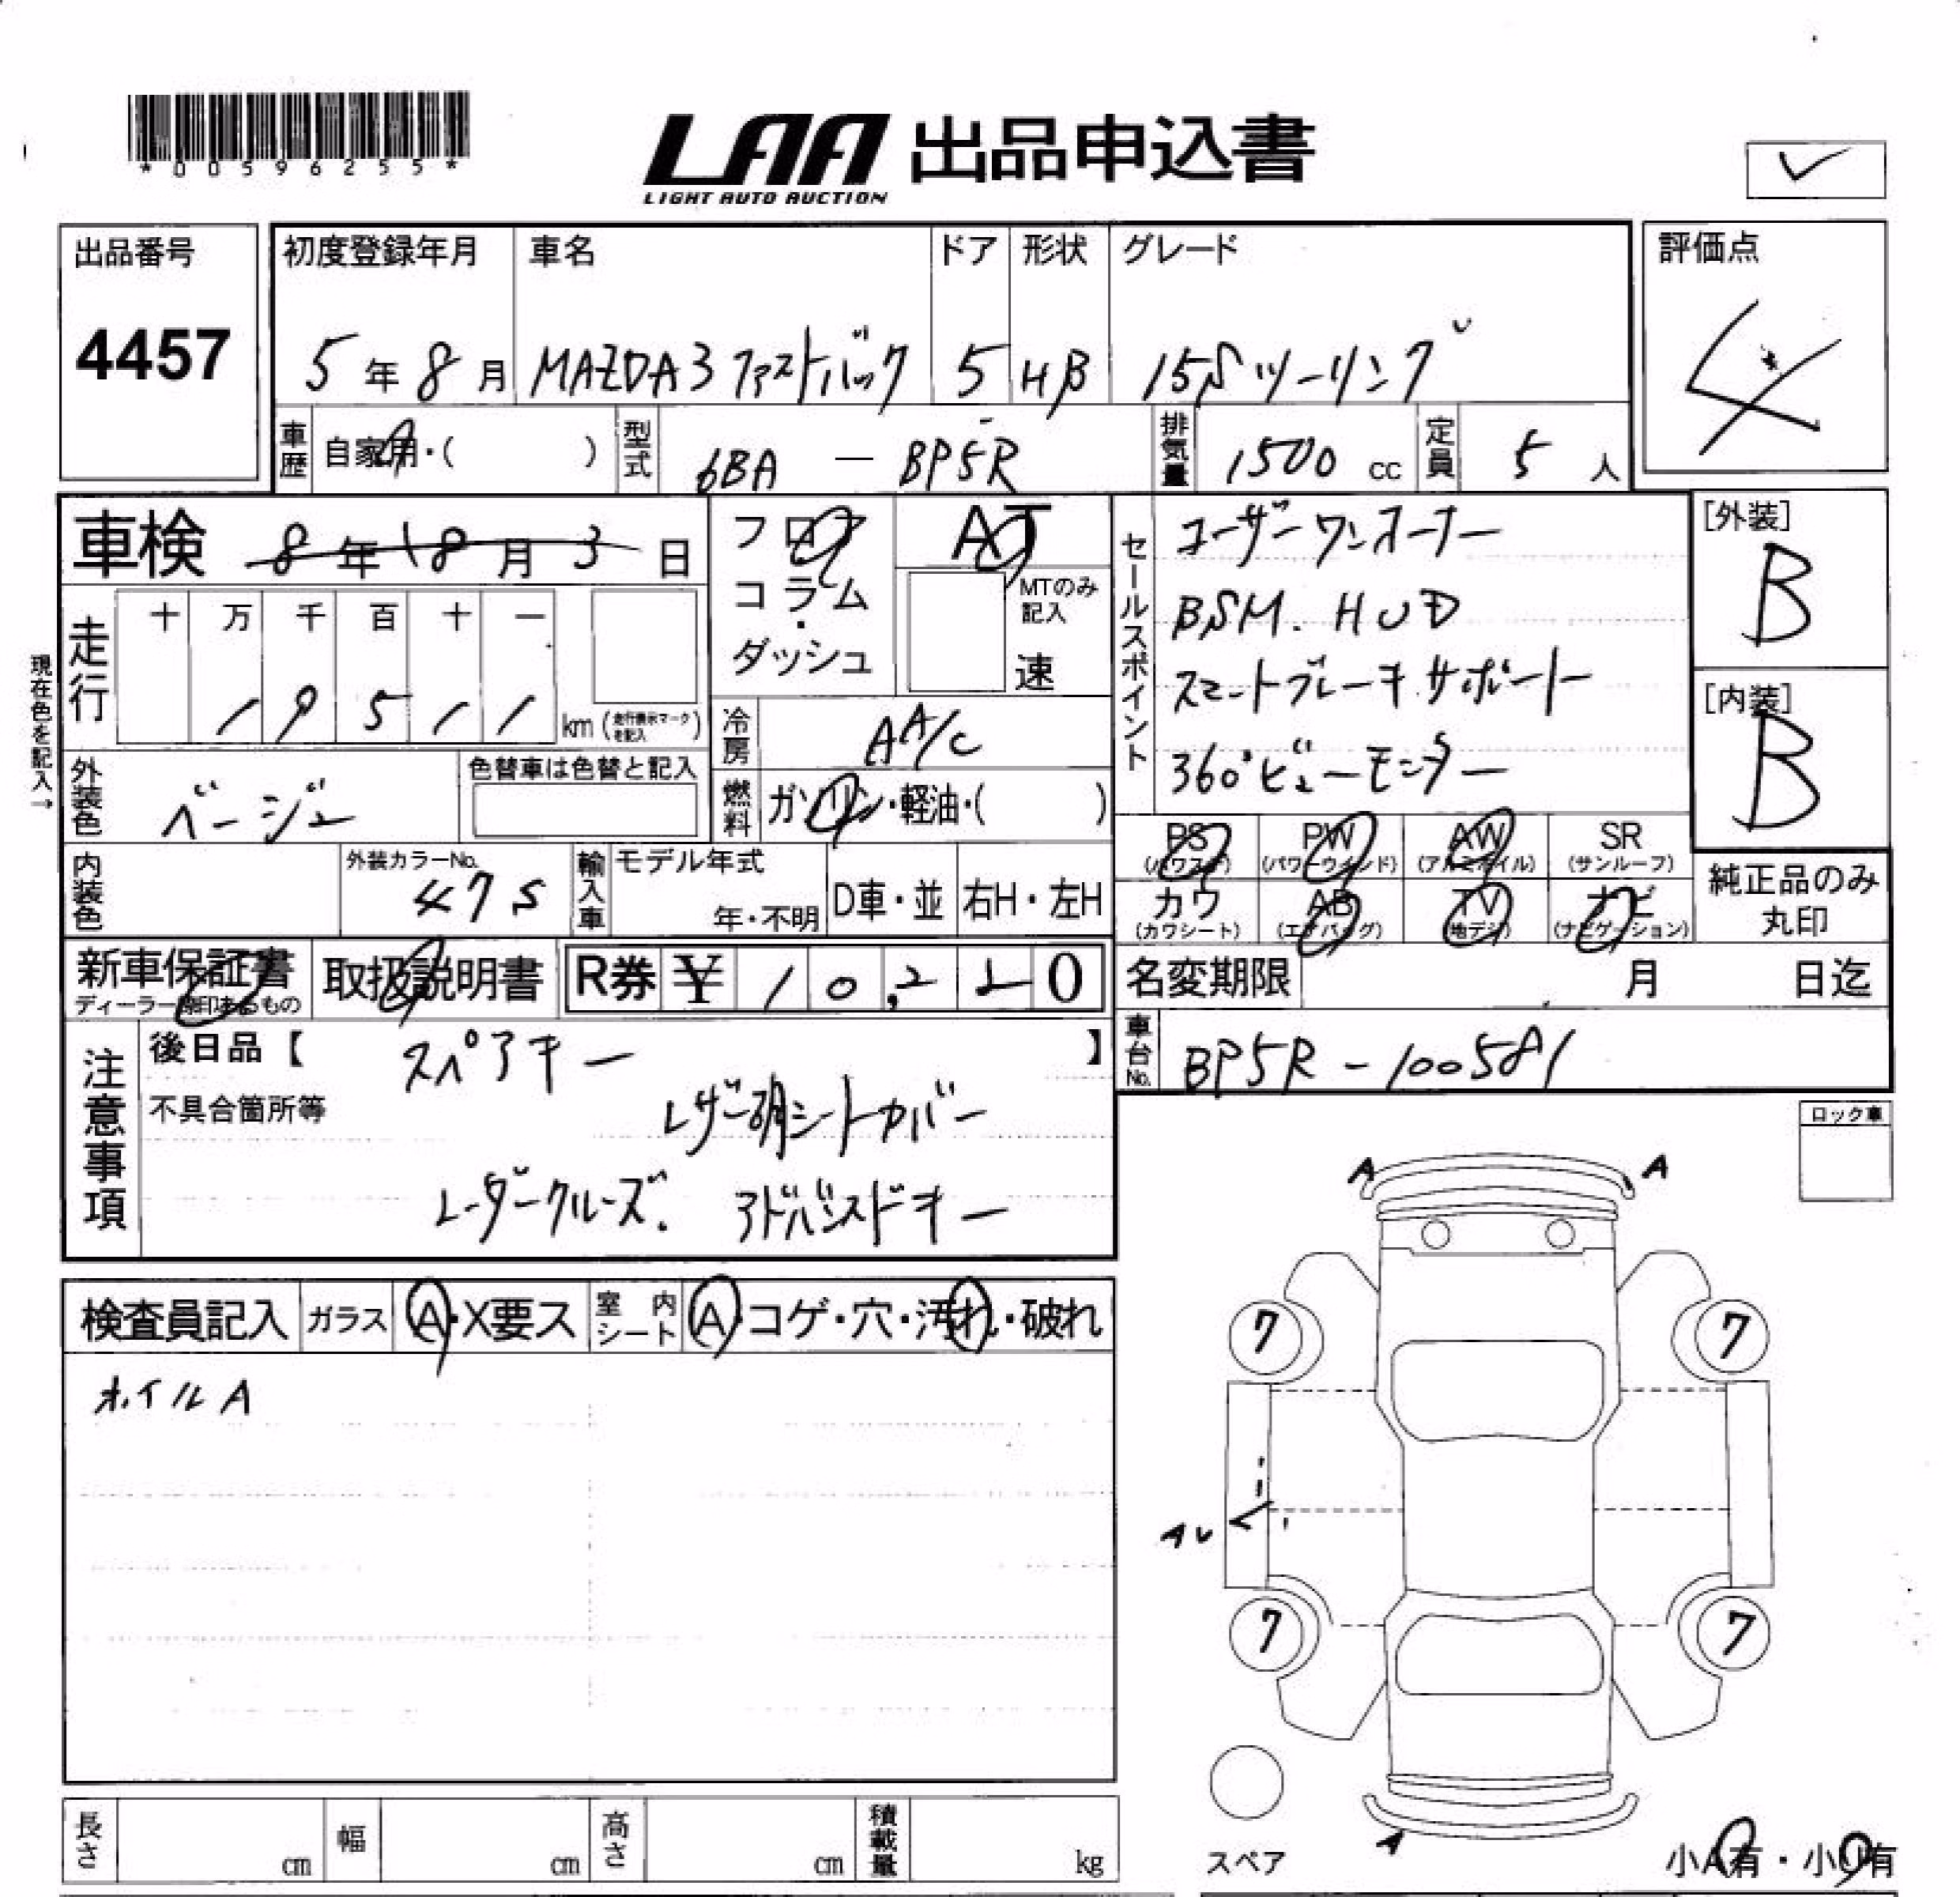 *00596255*
LAA 出品申込書
LIGHT AUTO AUCTION
出品番号
4457
初度登録年月 車名 ドア 形状 グレード
5年8月 MAZDA3 ファストバック 5 HB 15Sツーリング
評価点
4
車歴 自家用・( ) 型式 6BA — BP5R 排気量 1500 cc 定員 5 人
車検 8年8月3日
フロア
コラム・
ダッシュ
AT
MTのみ記入
速
走行 十 万 千 百 十 一
19511 km (走行表示マークを記入)
現在色を記入→
冷房 AA/C
外装色 ベージュ 色替車は色替と記入
燃料 ガソリン・軽油・( )
セールスポイント
ユーザーワンオーナー
BSM. HUD
スマートブレーキサポート
360°ビューモニター
[外装]
B
[内装]
B
PS (パワステ) PW (パワーウインド) AW (アルミホイル) SR (サンルーフ)
カワ (カワシート) AB (エアバッグ) TV (地デジ) ナビ (ナビゲーション)
純正品のみ
丸印
内装色 外装カラーNo. 47S 輸入車 モデル年式 年・不明 D車・並 右H・左H
新車保証書
ディーラー 印あるもの
取扱説明書 R券 ¥ 10,220
名変期限 月 日迄
車台No. BP5R-100581
注意事項
後日品【 スペアキー 】
不具合箇所等 シートカバー
レーダークルーズ. アドバンスドキー
ロック車
検査員記入 ガラス A・X要ス 室内シート A・コゲ・穴・汚れ・破れ
ホイルA
A A
7 7
7 7
A
長さ cm 幅 cm 高さ cm 積載量 kg
スペア
小A有・小U有